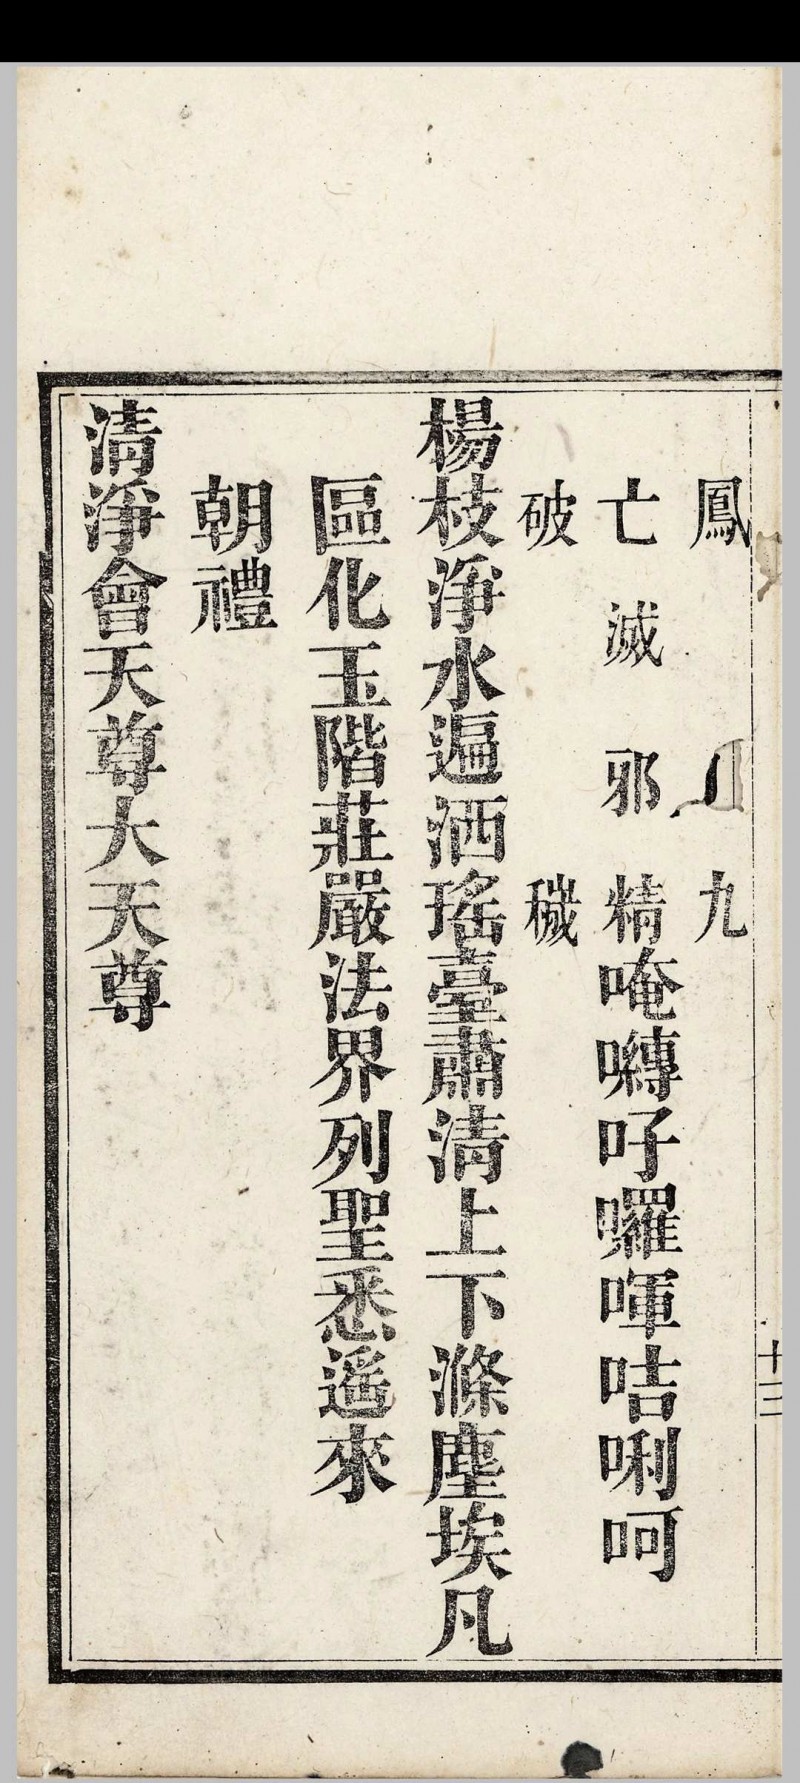 鳳
九
亡滅邪精唵嚩吇囉㖮咭唎呵
破穢
楊枝淨水遍洒瑤臺肅清上下滌塵埃凡
區化玉階莊嚴法界列聖悉遙來
朝禮
清淨會天尊大天尊
十三